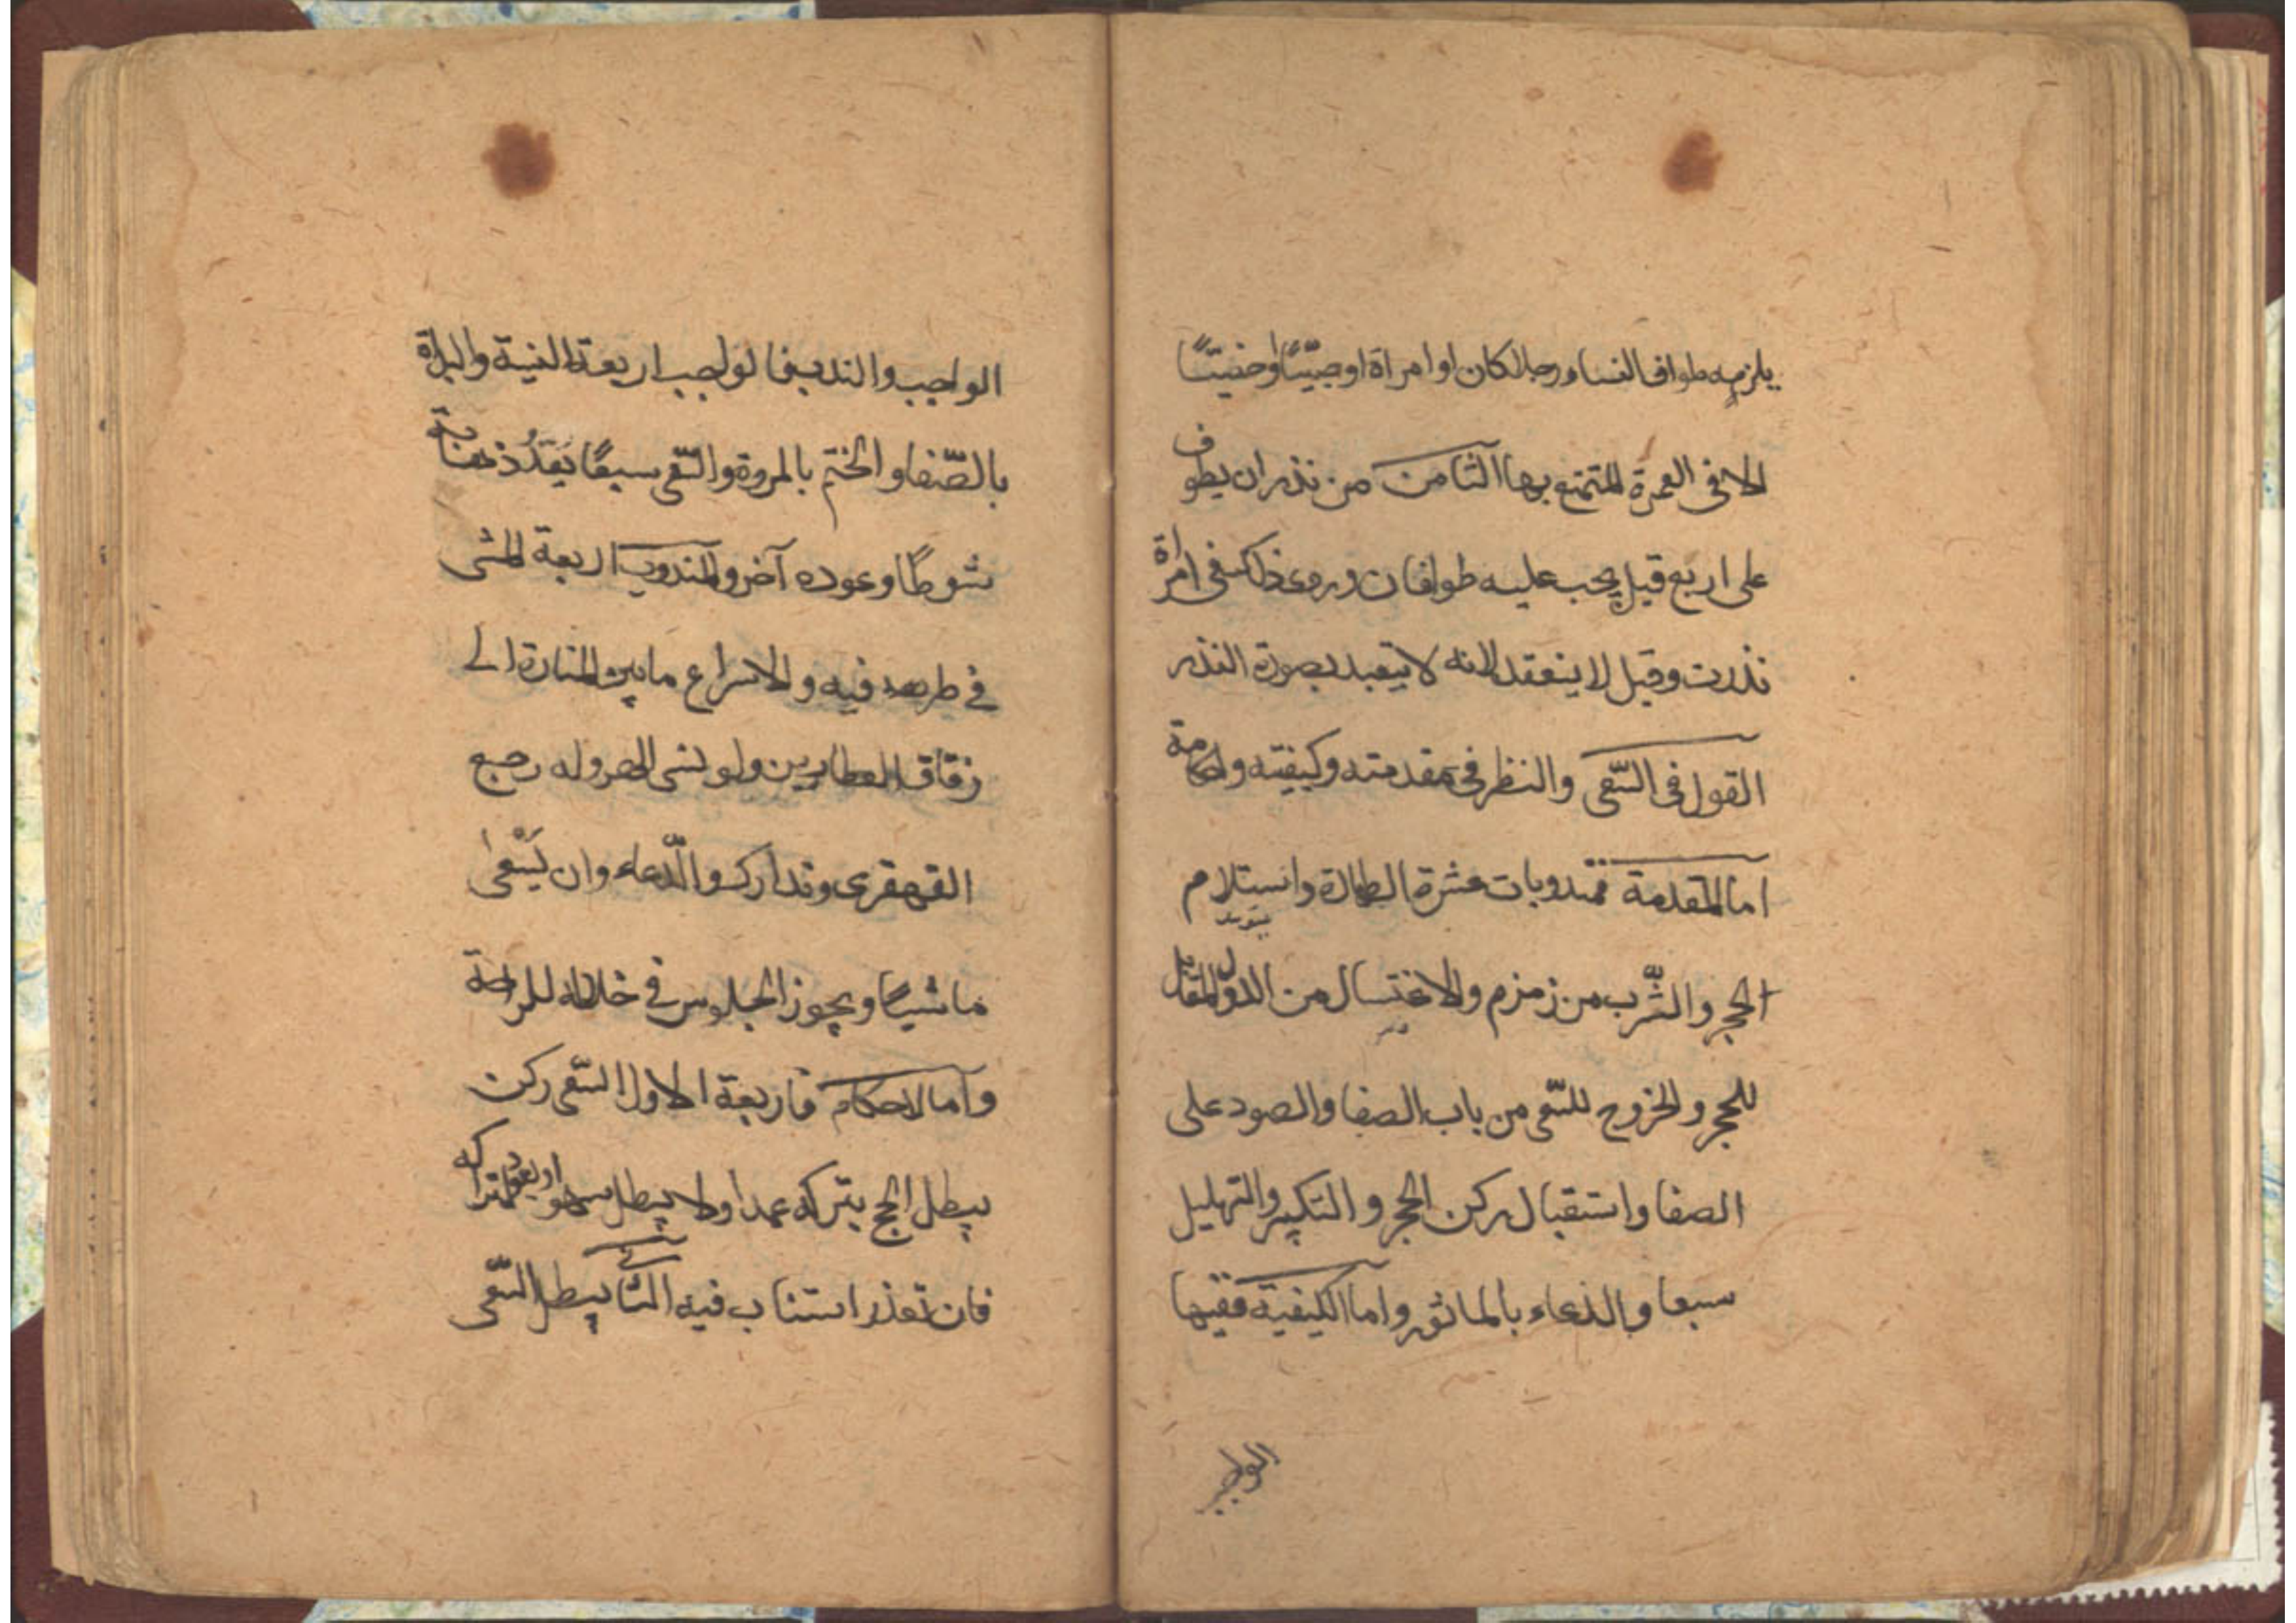 يلزمه طواف النساء رجلا كان او امراة او صبيًّا او خصيًّا
الا فى العمرة المتمتع بها الثامن من نذر ان يطوف
على اربع قيل يجب عليه طوافان وروى ذلك فى امراة
نذرت وقيل لا ينعقد لانه لا يتعبد بصورة النذر
القول فى السّعى والنظر فى مقدمته وكيفيته واحكامه
اما المقدمة فمندوبات عشرة الطهارة واستلام
الحجر والشّرب من زمزم والاغتسال من الدلو المقابل
للحجر والخروج للسّعى من باب الصفا والصود على
الصفا واستقبال ركن الحجر والتكبير والتهليل
سبعا والدعاء بالماثور واما الكيفية ففيها
الواجب
الواجب والندب فالواجب اربعة النية والبداة
بالصّفا والختم بالمروة والسّعى سبعًا يَعُدُّ ذهابه
شوطًا وعوده آخر والمندوب اربعة المشى
فى طرفيه والاسراع ما بين المنارة الى
زقاق العطارين ولو نسى الهروله رجع
القهقرى وتدارك والدّعاء وان يَسْعى
ماشيًا ويجوز الجلوس فى خلاله للراحة
واما الاحكام فاربعة الاول السّعى ركن
يبطل الحج بتركه عمدا ولا يبطل سهوا ويعود لتداركه
فان تعذر استناب فيه الثانى يبطل السّعى